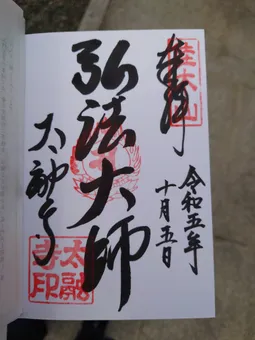 奉拝
佳木山
令和五年
十月五日
弘法大師
太融寺
太融寺印